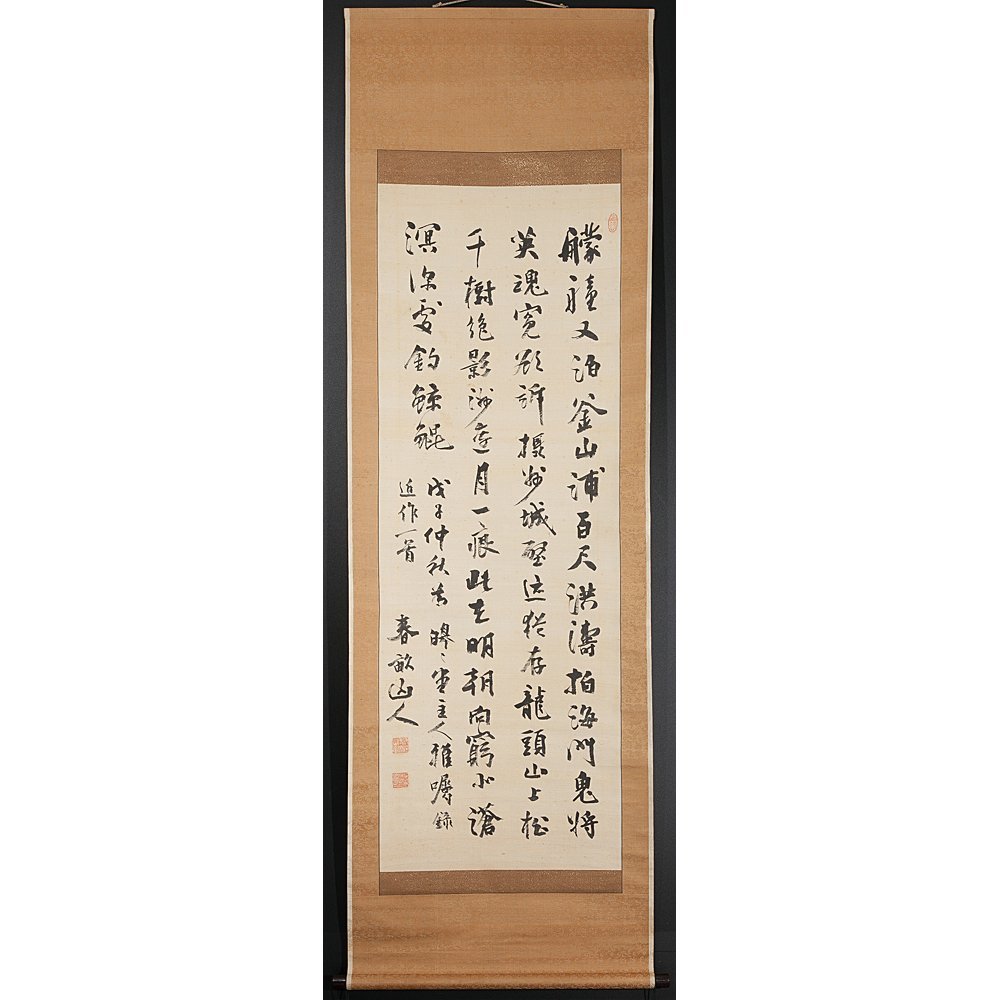 艨艟又泊釜山浦百尺洪濤拍海門鬼将
英魂寃欲訴攝州城壁迹猶存龍頭山上松
千樹絶影洲邊月一痕此去明朝向窮北滄
溟深處釣鯨鯤
戊子仲秋為堂主人雅嘱録
近作一首
春畝山人